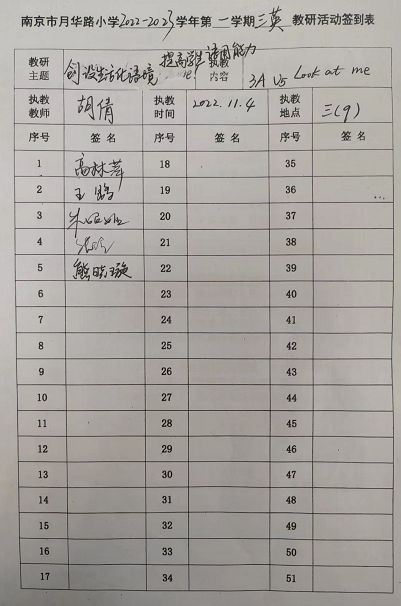 南京市月华路小学2022-2023学年第一学期三英教研活动签到表
教研主题 创设生活化语境 提高学生语用能力 执教内容 3A U5 Look at me
执教教师 胡倩 执教时间 2022.11.4 执教地点 三(9)
序号 签名 序号 签名 序号 签名
1 高林萍 18 35
2 王 19 36
3 20 37
4 21 38
5 熊晓璇 22 39
6 23 40
7 24 41
8 25 42
9 26 43
10 27 44
11 28 45
12 29 46
13 30 47
14 31 48
15 32 49
16 33 50
17 34 51